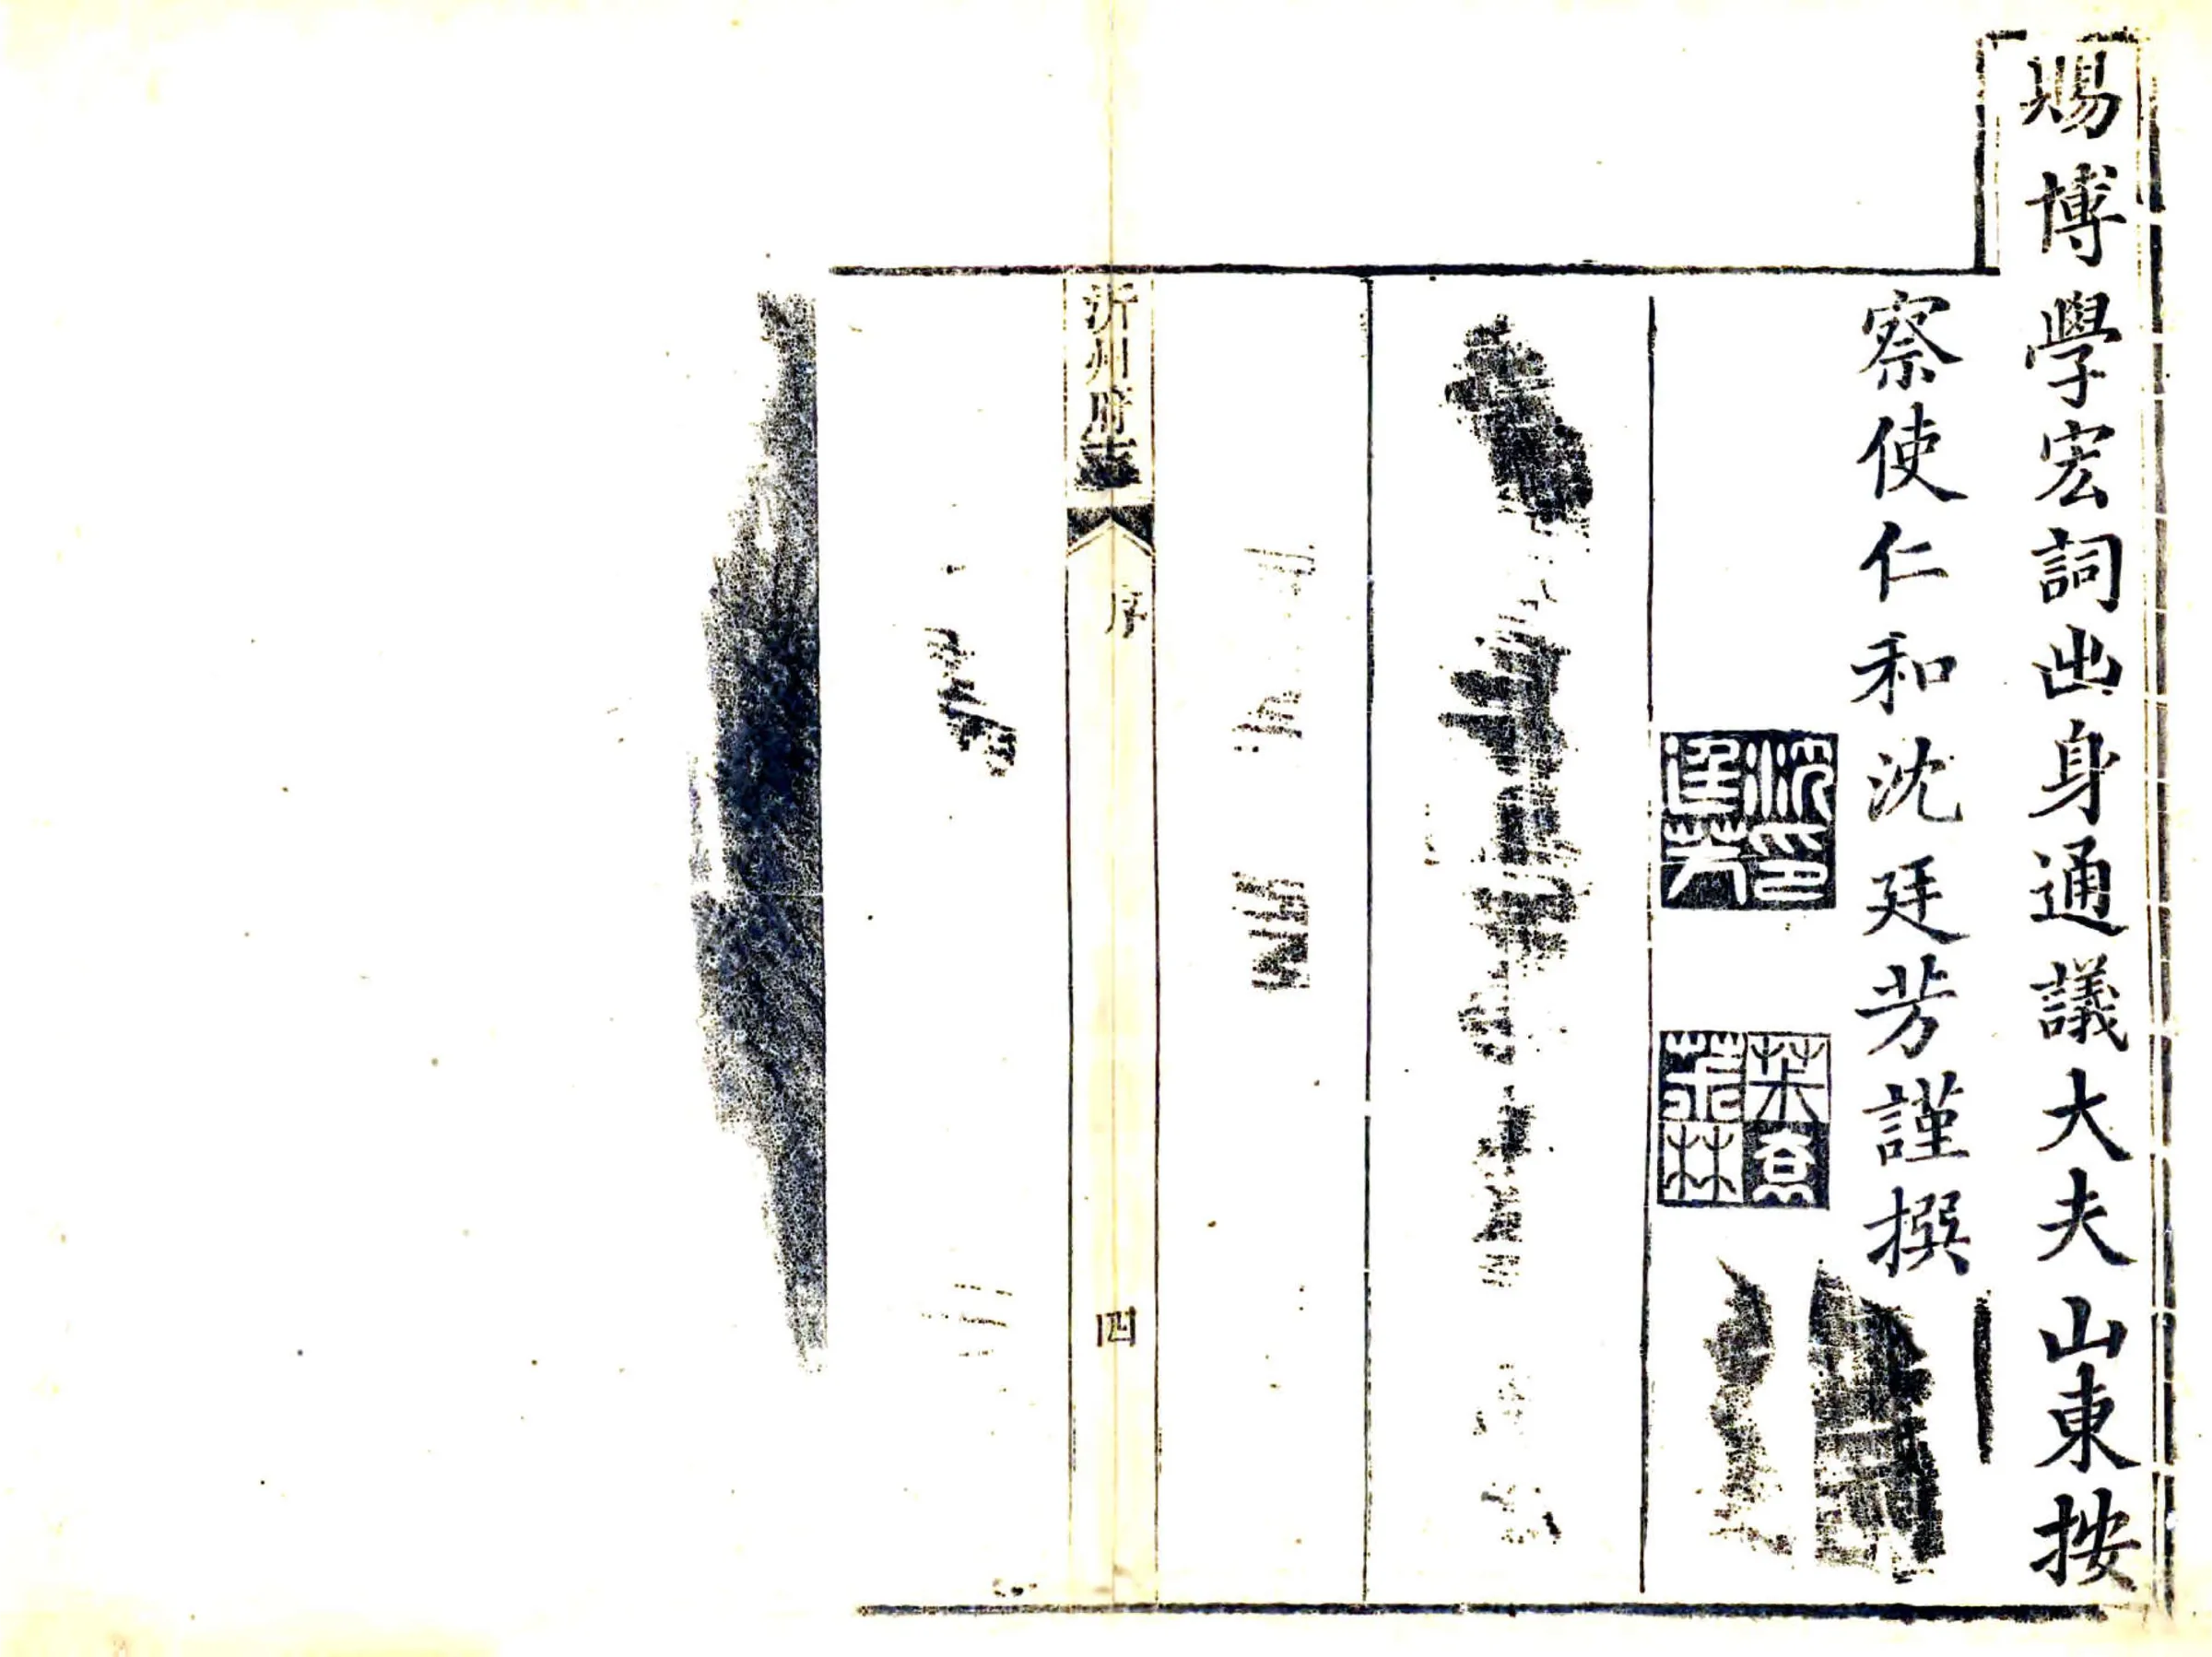 賜博學宏詞出身通議大夫山東按
察使仁和沈廷芳謹撰
沈印廷芳
沂州府志
序
四